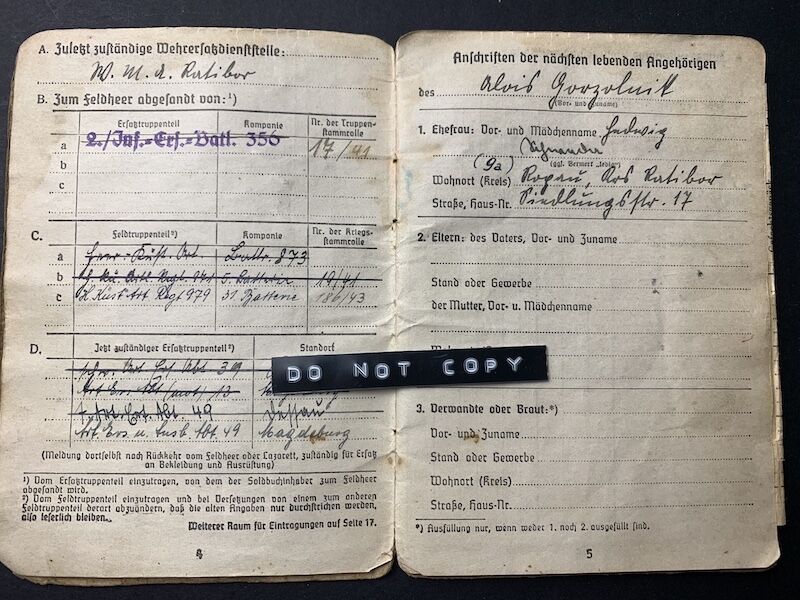 A. Zuletzt zuständige Wehrersatzdienststelle:
W. M. A. Ratibor
B. Zum Feldheer abgesandt von:¹)
Ersatztruppenteil
Kompanie
Nr. der Truppen-
stammrolle
a 2./Inf.=Ers.=Batl. 356 17/41
b
c
C. Feldtruppenteil²)
Kompanie
Nr. der Kriegs-
stammrolle
a Heer. Küst. Art. Battr. 873
b Artl. Regt. 5. Batterie 19/41
c H. Küst. Art. Regt 979 Batterie 186/43
D. Jetzt zuständiger Ersatztruppenteil²)
Standort
Art. Ers. Abt.
Art. Ers. Abt. (mot) 13
Art. Ers. Abt. 49 Dessau
Art. Ers. u. Ausb. Abt. 49 Magdeburg
(Meldung dortselbst nach Rückkehr vom Feldheer oder Lazarett, zuständig für Ersatz
an Bekleidung und Ausrüstung)
¹) Vom Ersatztruppenteil einzutragen, von dem der Soldbuchinhaber zum Feldheer
abgesandt wird.
²) Vom Feldtruppenteil einzutragen und bei Versetzungen von einem zum anderen
Feldtruppenteil derart abzuändern, daß die alten Angaben nur durchstrichen werden,
also leserlich bleiben.
Weiterer Raum für Eintragungen auf Seite 17.
4
DO NOT COPY
Anschriften der nächsten lebenden Angehörigen
des Alois Gorzolnik
(Vor- und Zuname)
1. Ehefrau: Vor- und Mädchenname Hedwig
(ggf. Vermerk „ledig“)
(9a)
Wohnort (Kreis) Ratibor
Straße, Haus-Nr. Siedlungsstr. 17
2. Eltern: des Vaters, Vor- und Zuname
Stand oder Gewerbe
der Mutter, Vor- u. Mädchenname
3. Verwandte oder Braut:*)
Vor- und Zuname
Stand oder Gewerbe
Wohnort (Kreis)
Straße, Haus-Nr.
*) Ausfüllung nur, wenn weder 1. noch 2. ausgefüllt sind.
5